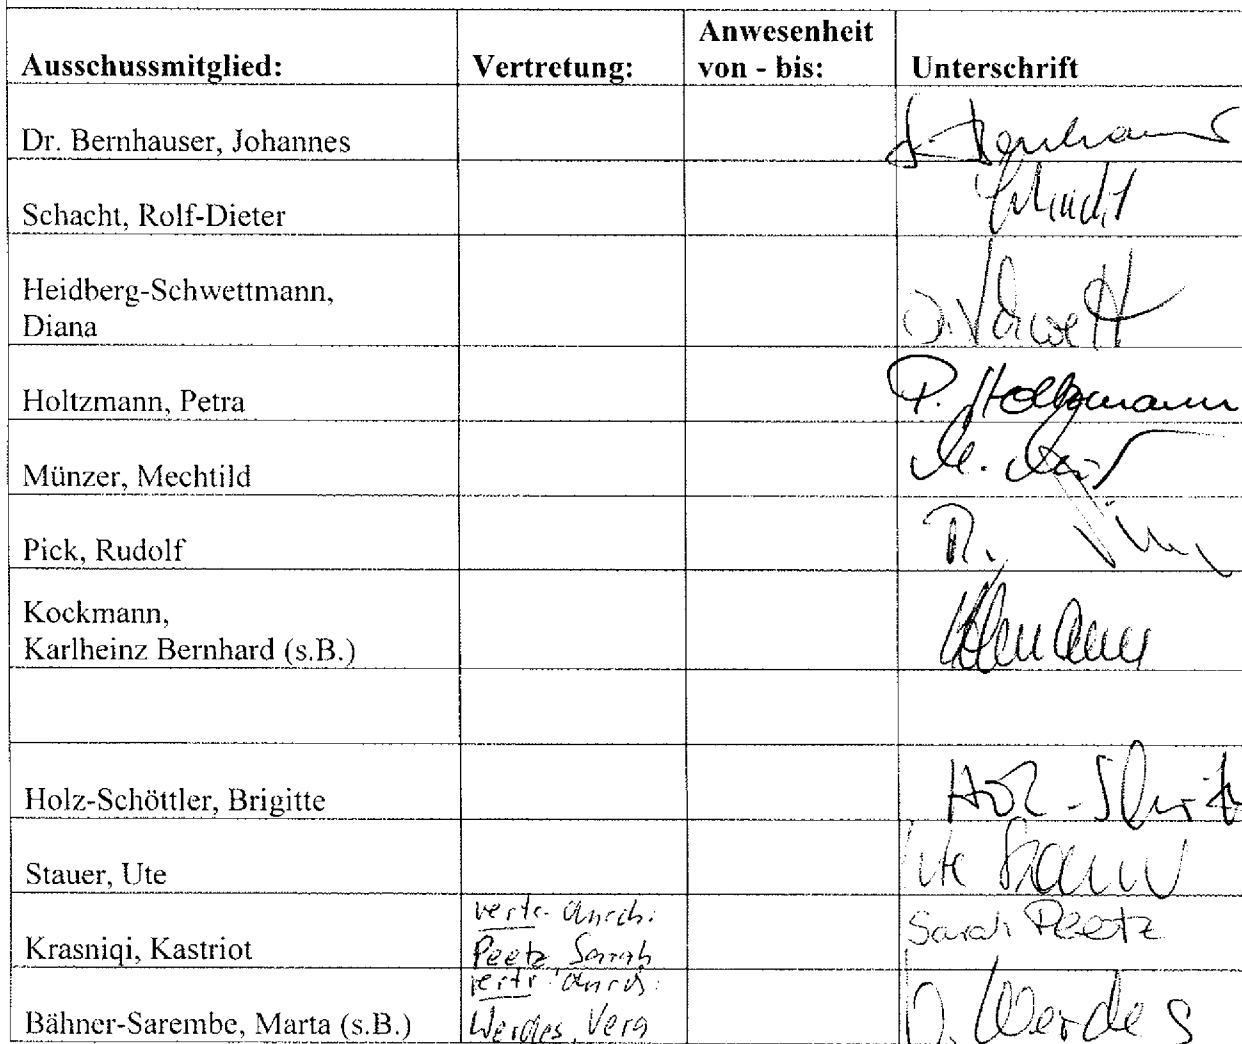 Ausschussmitglied: Vertretung: Anwesenheit von - bis: Unterschrift
Dr. Bernhauser, Johannes
Schacht, Rolf-Dieter
Heidberg-Schwettmann,
Diana
Holtzmann, Petra P. Holtzmann
Münzer, Mechtild
Pick, Rudolf
Kockmann,
Karlheinz Bernhard (s.B.)
Holz-Schöttler, Brigitte
Stauer, Ute Ute Stauer
vertr. durch:
Krasniqi, Kastriot Peetz, Sarah Sarah Peetz
vertr. durch:
Bähner-Sarembe, Marta (s.B.) Werdes, Vera Werdes